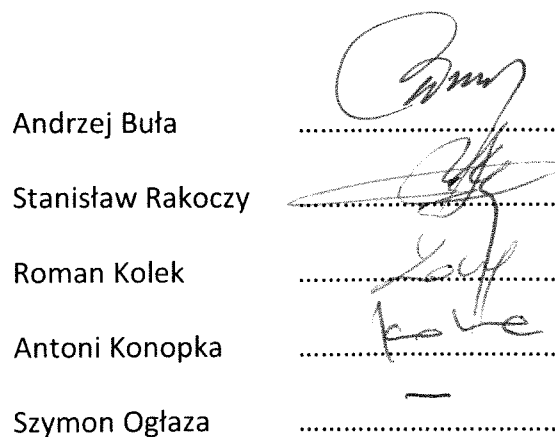 Andrzej Buła ..............................
Stanisław Rakoczy ..............................
Roman Kolek ..............................
Antoni Konopka ..............................
Szymon Ogłaza .............................. —